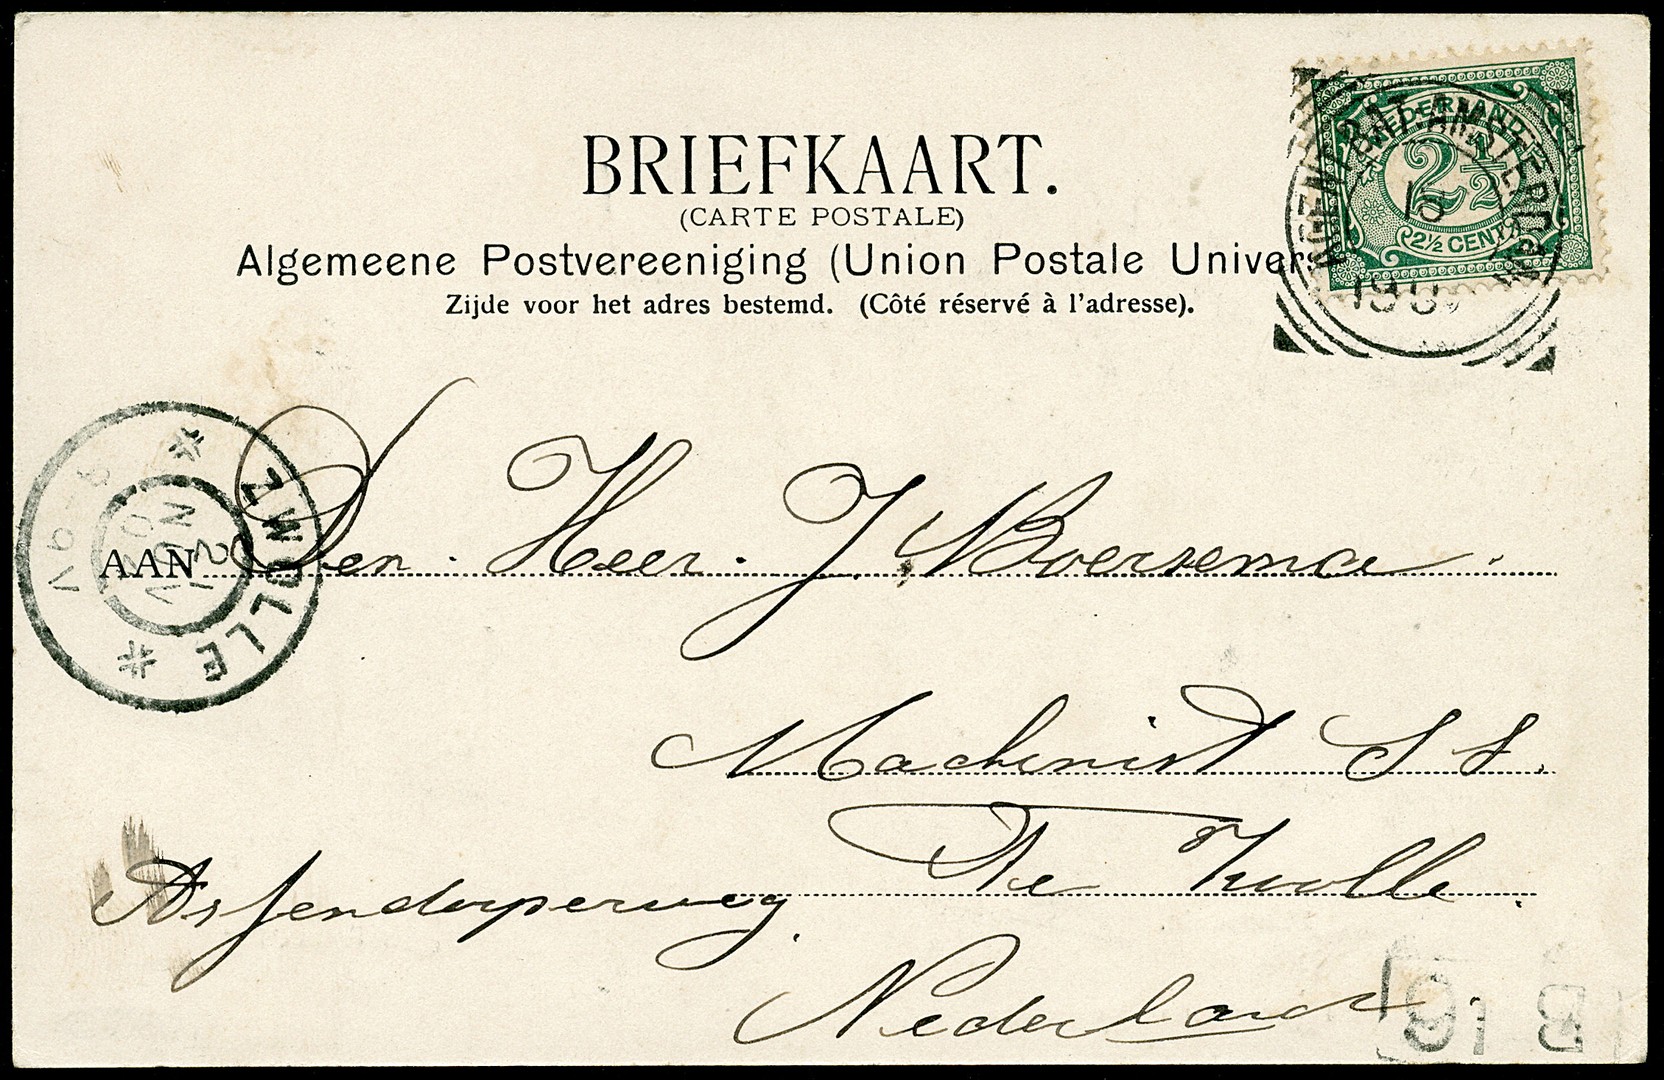 BRIEFKAART.
(CARTE POSTALE)
Algemeene Postvereeniging (Union Postale Univers
Zijde voor het adres bestemd. (Côté réservé à l'adresse).
NEDERLAND
2½
2½ CENT
AMSTERDAM
15
190
ZWOLLE
8-9V
2
NOV
AAN Den Heer J. Boersema.
Machinist S S.
Te Zwolle.
Assendorperweg.
Nederland.
B 16